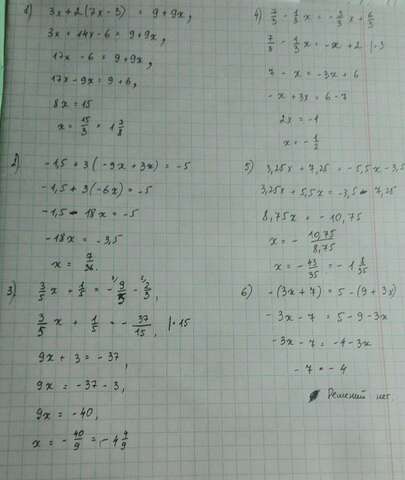 1) 3x + 2(7x - 3) = 9 + 9x,
3x + 14x - 6 = 9 + 9x,
17x - 6 = 9 + 9x,
17x - 9x = 9 + 6,
8x = 15
x = 15/8 = 1 7/8
2) -1,5 + 3(-9x + 3x) = -5
-1,5 + 3(-6x) = -5
-1,5 - 18x = -5
-18x = -3,5
x = 7/36.
3) 3/5 x + 1/5 = - 9/5 - 2/3,
3/5 x + 1/5 = - 37/15, |·15
9x + 3 = -37,
9x = -37 - 3,
9x = -40,
x = - 40/9 = -4 4/9
4) 7/3 - 1/3 x = - 3/3 x + 6/3
7/3 - 1/3 x = -x + 2 |·3
7 - x = -3x + 6
-x + 3x = 6 - 7
2x = -1
x = - 1/2
5) 3,25x + 7,25 = -5,5x - 3,5
3,25x + 5,5x = -3,5 - 7,25
8,75x = -10,75
x = - 10,75/8,75
x = - 43/35 = -1 8/35
6) -(3x + 7) = 5 - (9 + 3x)
-3x - 7 = 5 - 9 - 3x
-3x - 7 = -4 - 3x
-7 = -4
Решений нет.